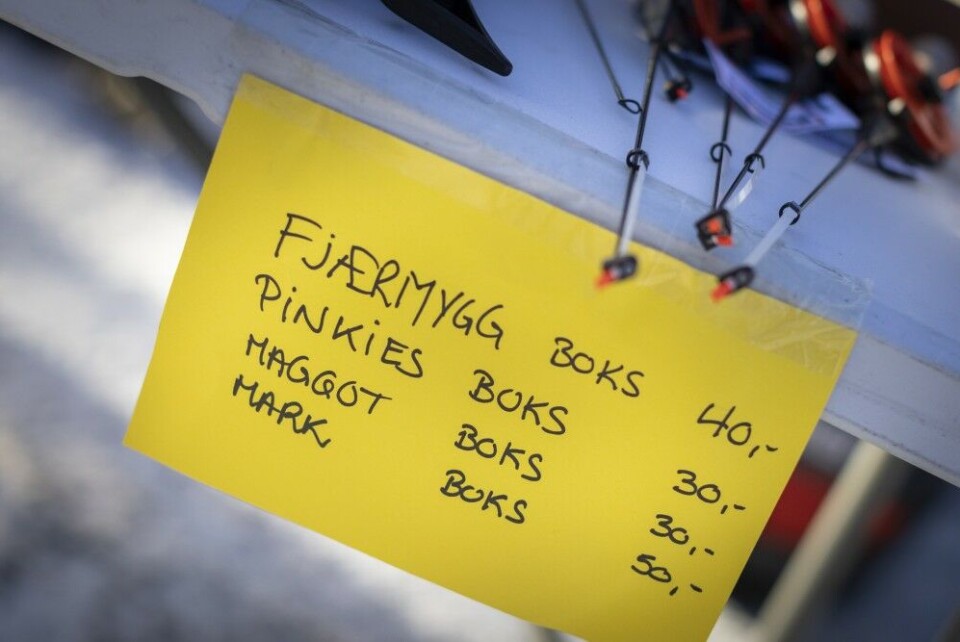 FJÆRMYGG BOKS 40,-
PINKIES BOKS 30,-
MAGGOT BOKS 30,-
MARK BOKS 50,-